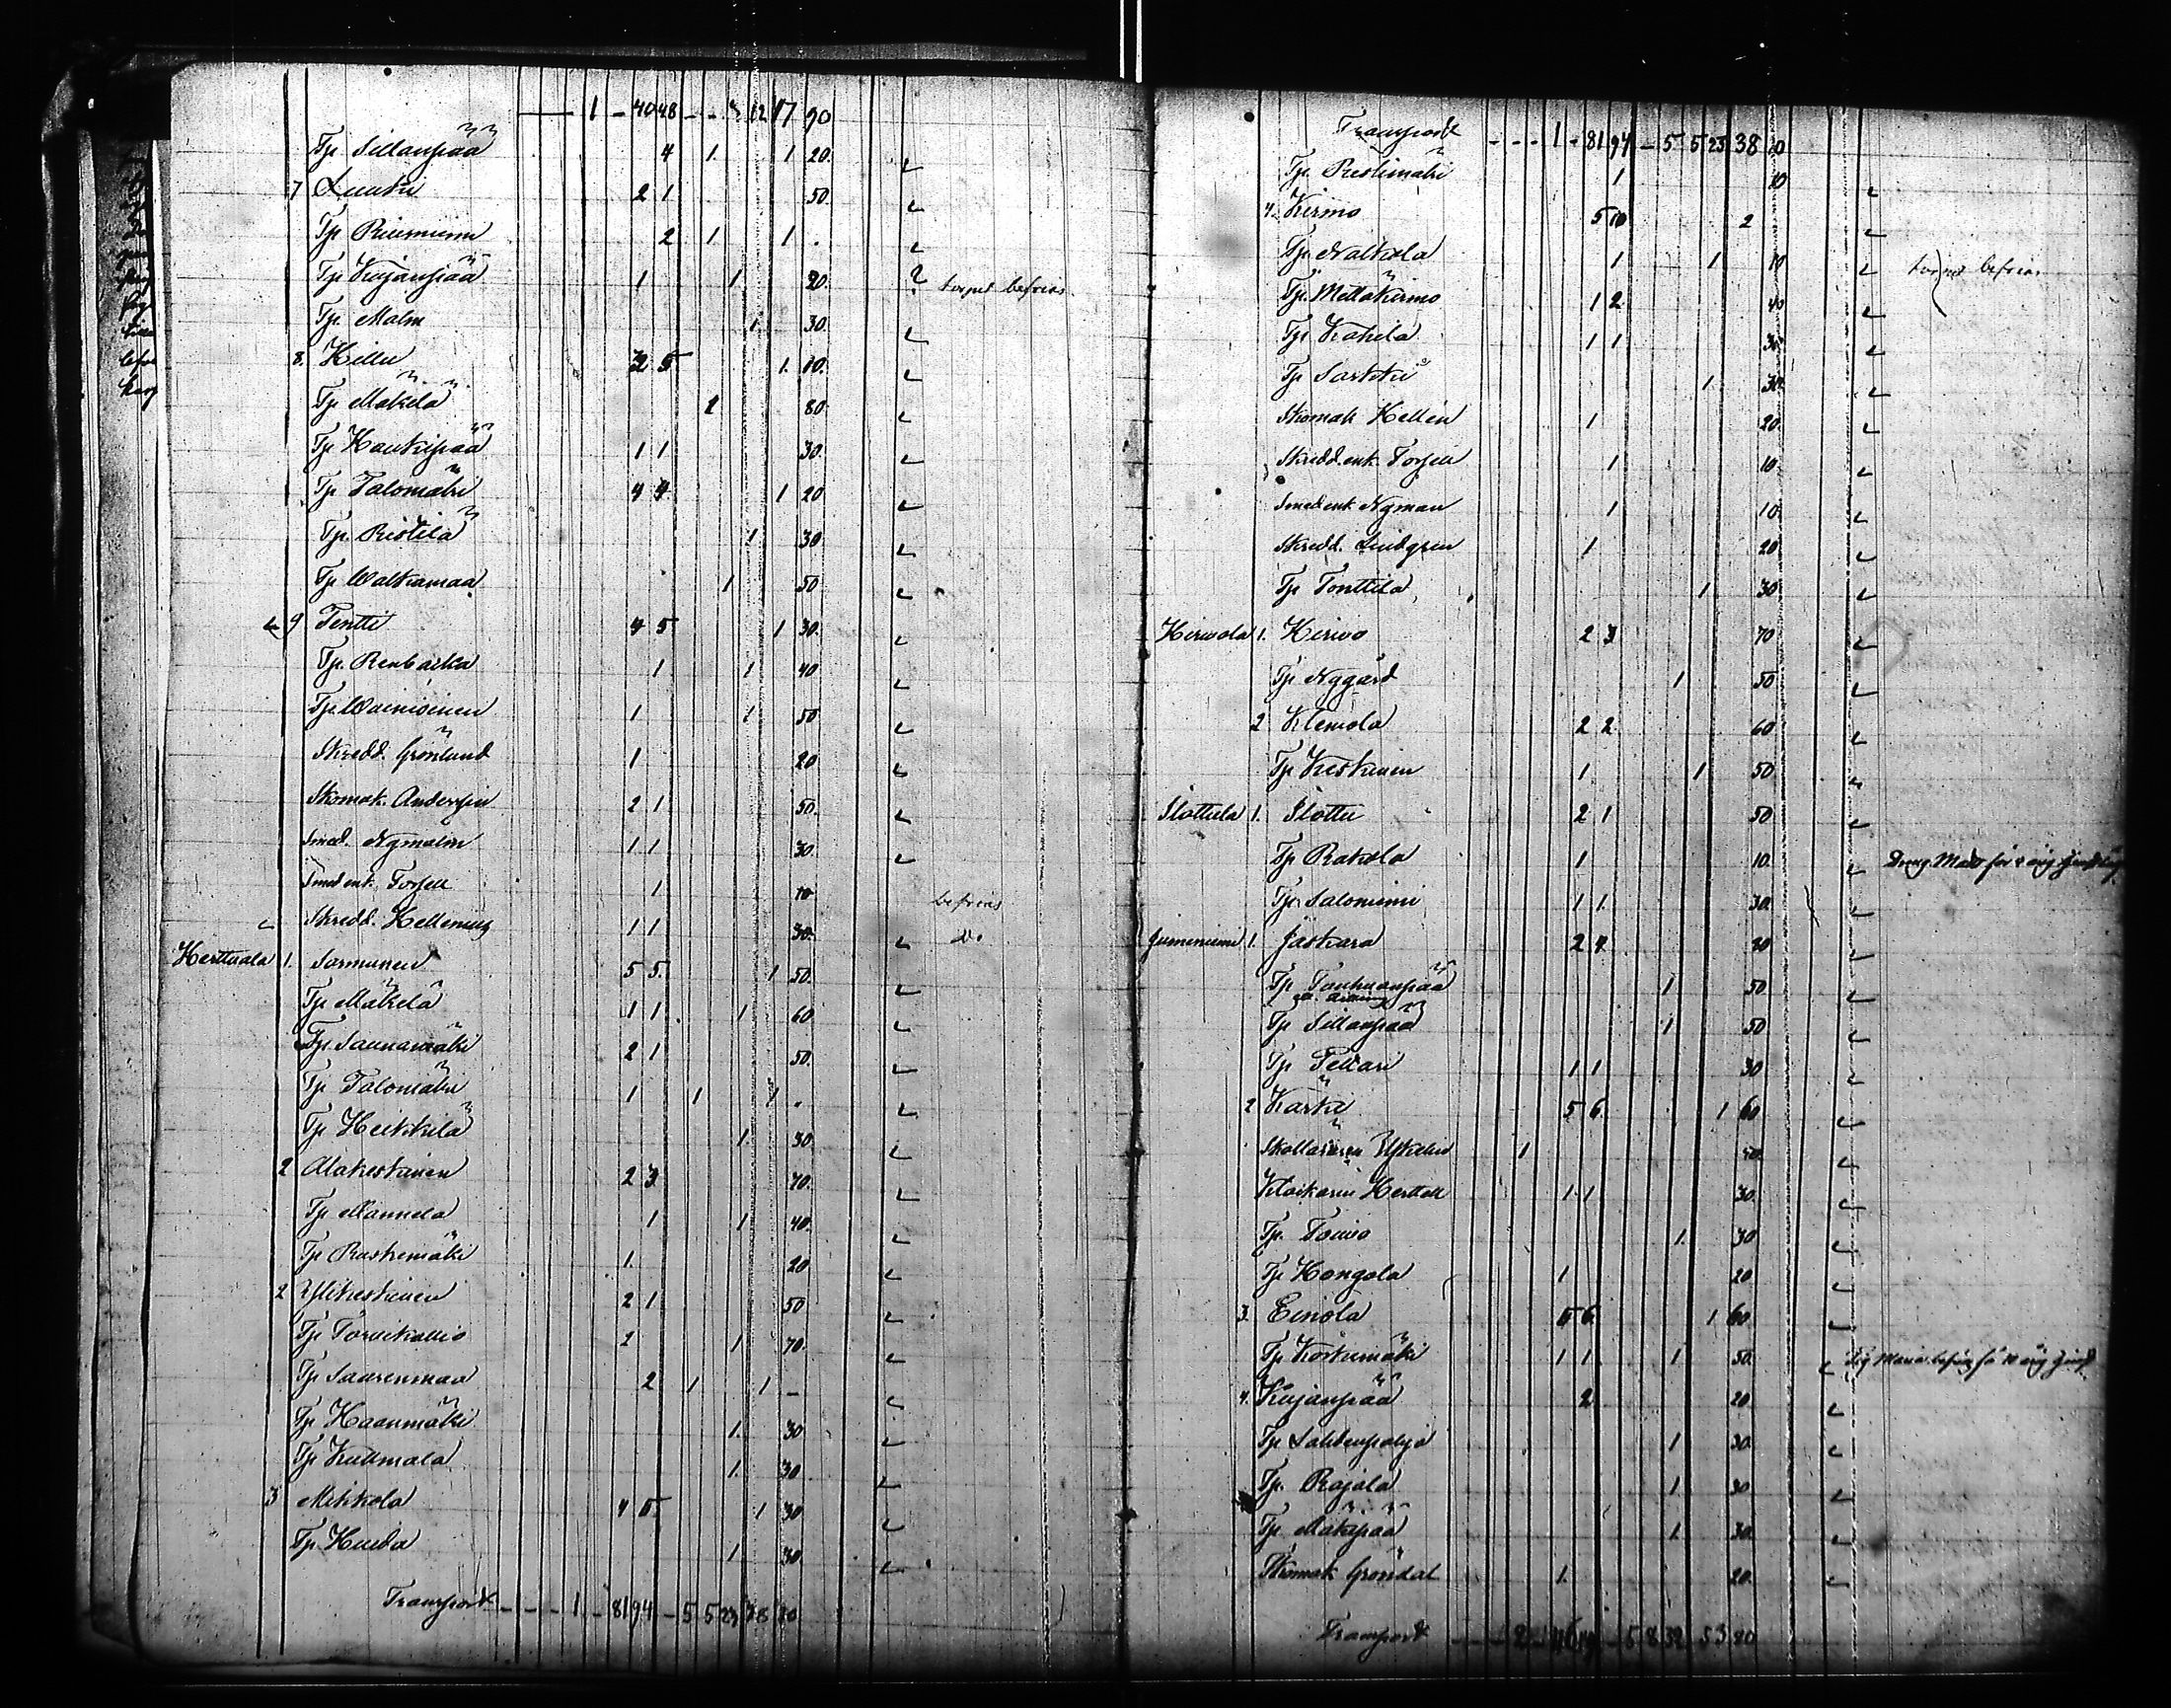 1 - 40 48 - - 3 12 17 90
Tp Sillanpää 4 1. 1 20.
7 Luuki 2 1 50.
Tp Riiminimi 2 1 1 .
Tp Kujanpää 1 1 20. torpet befrias
Tp. Malm 1 30.
8. Hillu 2 5 1. 10.
Tp Mäkelä 2 80.
Tp Haukipää 1 1 30.
Tp Talomäki 4 4 1 20
Tp. Ristilä 1 30
Tp Walkamaa 1 50
9 Tentti 4 5 1 30.
Tp. Renbacka 1 1 40
Tp. Wäinöinen 1 1 50
Skredd. Grönlund 1 20
Skomak. Andersin 2 1 50.
Smed. Nymalm 1 1 30.
Smed enk. Forsell 1 10 befrias
Skredd. Hellenius 1 1 30. do
Herttuala 1. Sarmunen 5 5. 1 50.
Tp Mäkelä 1 1 1 60
Tp. Saunamäki 2 1 50.
Tp Talomäki 1 1 1 .
Tp Heikkilä 1. 30
2 Alakeskinen 2 3 70.
Tp Mannela 1 1 40.
Tp Raskimäki 1. 20
2 Ylikeskinen 2 1 50
Tp Torvikallio 2 1 70.
Tp Saarenmaa 2 1 1 -
Tp Haanmäki 1. 30
Tp Kullmala 1. 30
3 Mikkola 4 5. 1 30
Tp. Huida 1 30.
Transport - - - 1 - 81 94 - 5 5 23 38 10
Transport - - - 1 - 81 94 - 5 5 23 38 10
Tp. Ristimäki 1 10
4. Kirmo 5 10 2
Tp. Nalkala 1 1 10 torpet befrias
Tp. Mettäkirmo 1 2 40
Tp Kakela 1 1 30
Tp Sarkku 1 30.
Skomak Hellén 1 20.
Skredd. enk. Forsell 1 10
Smed enk Nyman 1 10
Skredd. Lindgren 1 20
Tp Tonttila 1 30
Hirvola 1. Hirvo 2 3 70
Tp Nygård 1 50
2 Klemola 2 2 60
Tp Keskinen 1 1 50
Slottila 1. Slotti 2 1 50
Tp Rakola 1 10.
Tp. Saloniemi 1 1. 30.
Juminiemi 1. Jaskara 2 4 80
Tp Tanhuanpää 1 50
Tp Sillanpää 1 50
Tp Pettari 1 1 30
2 Karke 5 6. 1 60
Klockarin Herttell 1 1 30
Tp. Toivo 1. 30
Tp Hongola 1 20
3. Einola 5 6 1 60
Tp Koskimäki 1 1 1 50. Pig Maria
4. Kujanpää 2 20
Tp Lahdenpohja 1 30.
Tp. Rajala 1 30
Tp Mäkipää 1. 30.
Skomak Gröndal 1. 20.
Transport - - - 2 5 8 32 53 80